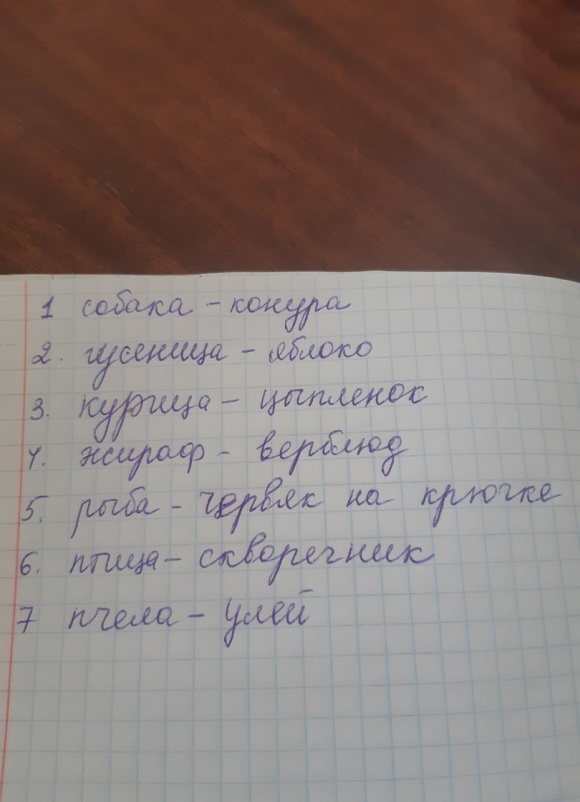 1 собака - конура
2. гусеница - яблоко
3. курица - цыпленок
4. жираф - верблюд
5. рыба - червяк на крючке
6. птица - скворечник
7 пчела - улей